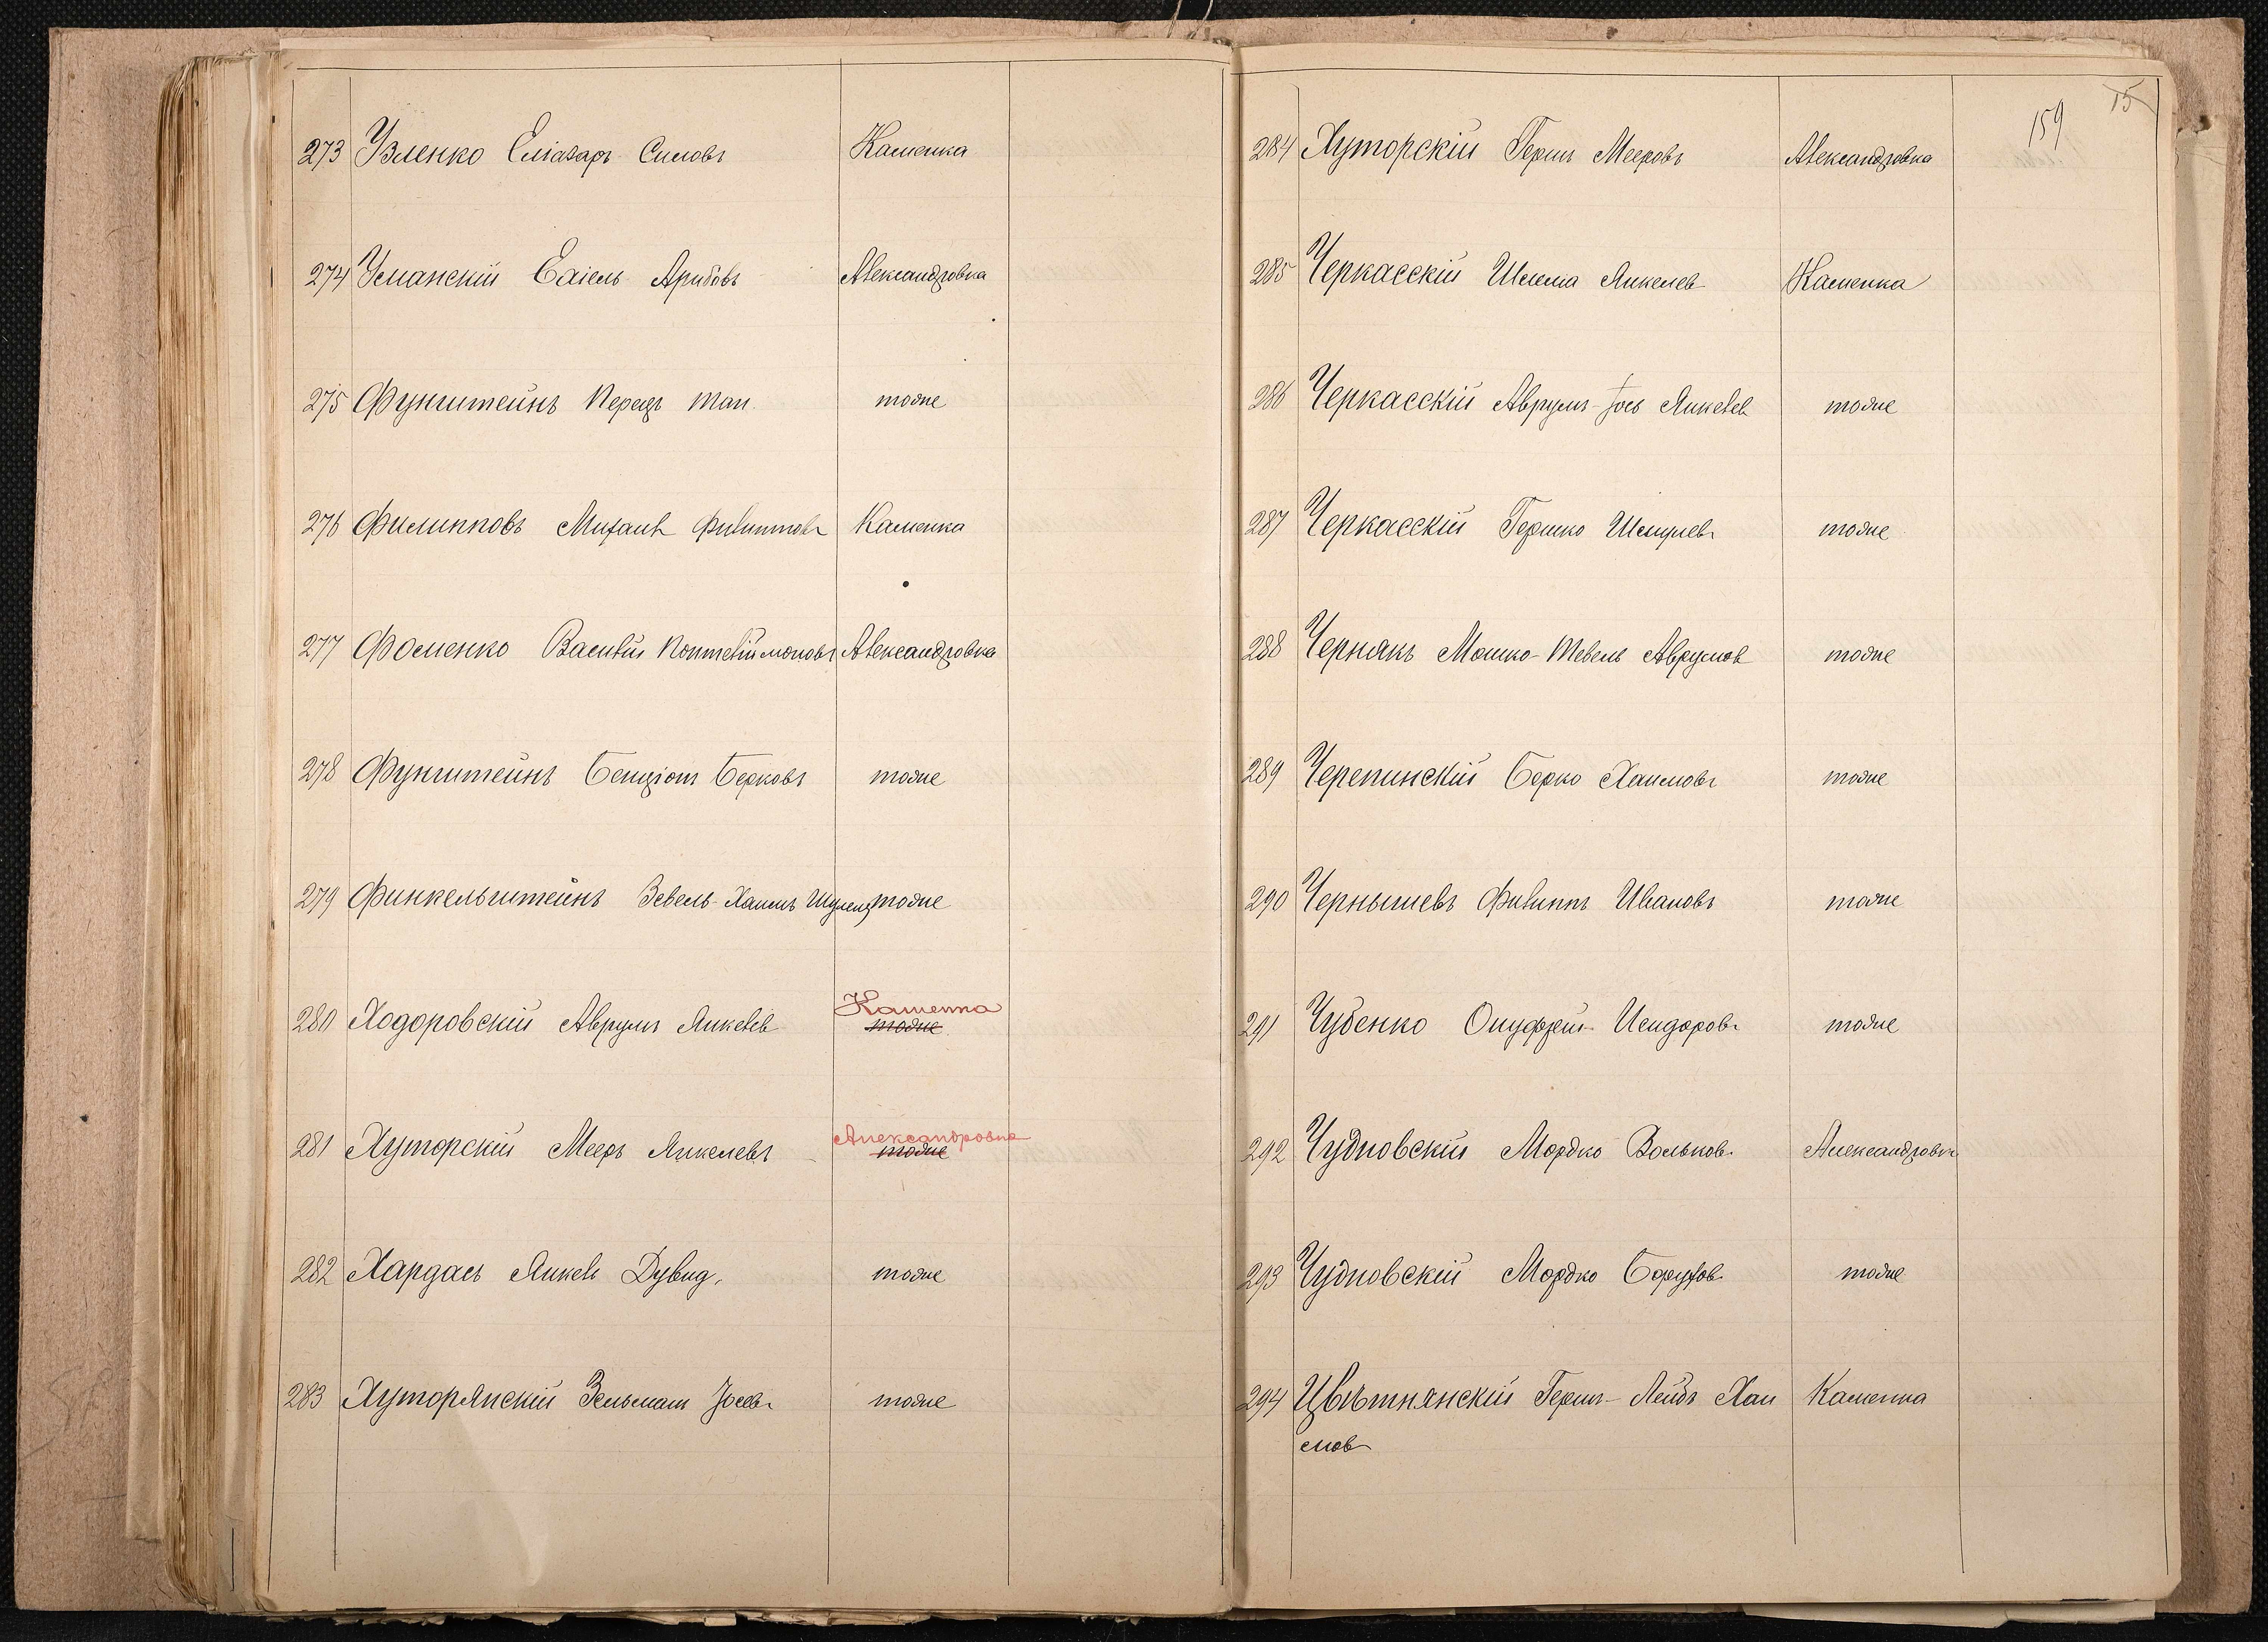 273 Узленко Еліазаръ Симовъ Каменка
274 Усманскій Александровка
275 Фунштейнъ Перецъ тоже
276 Филипповъ Михаилъ Филипповъ Каменка
277 Фоменко Василій Понтелиймоновъ Александровка
278 Фунштейнъ Бенціонъ Берковъ тоже
279 Финкельштейнъ Зевель-Хаимъ тоже
Каменка
280 Ходоровскій Аврумъ Янкелев тоже
Александровка
281 Хуторскій Мееръ Янкелевъ тоже
282 Хардасъ Янкель Дувид. тоже
283 Хуторянскій Зельманъ Іосев. тоже
159 15
284 Хуторскій Гершъ Мееровъ Александровка
285 Черкасскій Шлема Янкелев Каменка
286 Черкасскій Аврумъ-Іось Янкелев тоже
287 Черкасскій Гершко Шмулевъ тоже
288 Чернякъ Мошко-Тевель Аврумов тоже
289 Черепинскій Берко Хаимовъ тоже
290 Чернышевъ Филиппъ Ивановъ тоже
291 Чубенко Онуфрей Исидоровъ тоже
292 Чудновскій Мордко Вольков. Александровка
293 Чудновскій Мордко Борухов. тоже
294 Цвѣтнянскій Гершъ-Лейбъ Хаи Каменка
мов